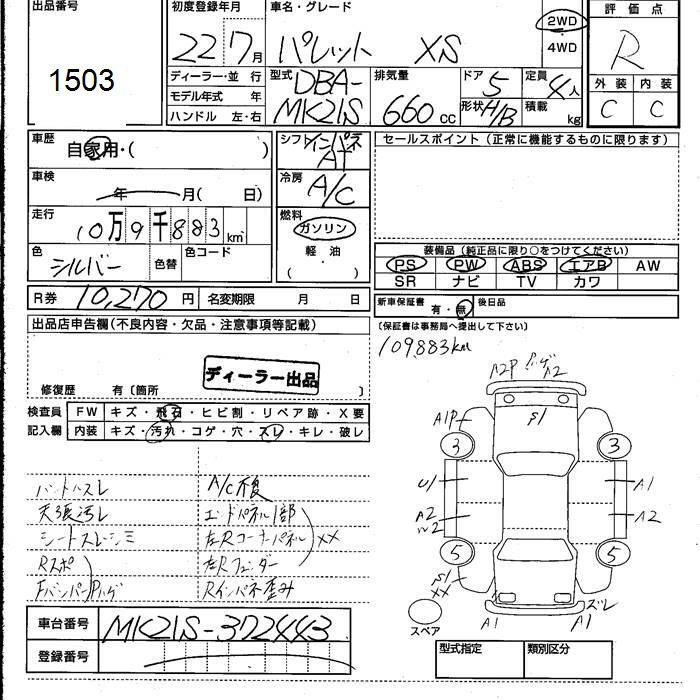 出品番号
1503
初度登録年月
22 7月
車名・グレード
パレット XS
2WD
・
4WD
評価点
R
外装 内装
C C
ディーラー・並行
モデル年式 年
ハンドル 左・右
型式
DBA-
MK21S
排気量
660 cc
ドア 5
形状 H/B
定員 4人
積載 kg
車歴
自家用・( )
車検
年 月( 日)
走行
10万9千883km
色
シルバー
色替
色コード
シフト インパネ
AT
冷房
A/C
燃料
ガソリン
軽・油
( )
セールスポイント(正常に機能するものに限ります)
装備品(純正品に限り○をつけてください)
PS PW ABS エアB AW
SR ナビ TV カワ
R券 10,270 円
名変期限 月 日
新車保証書 有・無
後日品
(保証書は事務局へ提出して下さい)
109883km
出品店申告欄(不良内容・欠品・注意事項等記載)
ディーラー出品
修復歴 有〔箇所 〕
検査員 FW キズ・飛石・ヒビ割・リペア跡・X要
記入欄 内装 キズ・汚れ・コゲ・穴・スレ・キレ・破レ
ハンドルスレ
天張汚レ
シートスレ・シミ
Rスポ
FバンパーPハゲ
A/C不良
エンドパネル1部
左Rコーナーパネル XX
左Rフェンダー
Rインパネ歪み
A2P ハゲ A2
A1P
S1
3 3
U1 A1
A2 A2
5 5
S1
XX
スペア
A1
A1
ズレ
車台番号 MK21S-372443
登録番号
型式指定 類別区分